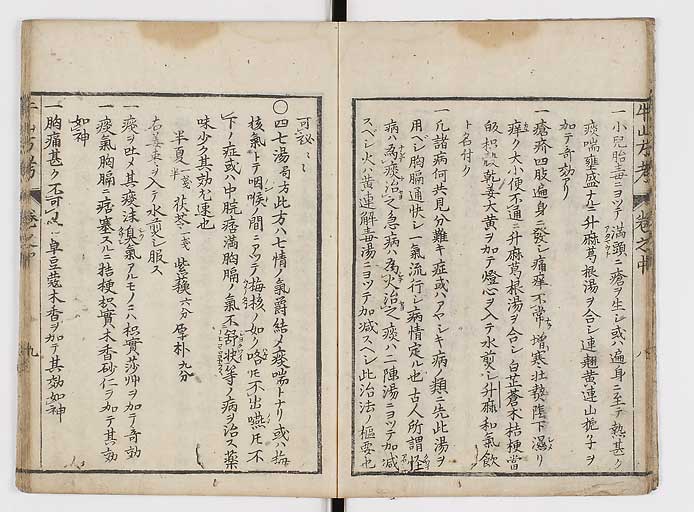 牛山方考 卷之中 八
一小兒胎毒ニヨツテ満頭ニ瘡ヲ生シ或ハ遍身ニ至テ熱甚ク
痰喘壅盛ナルニ升麻葛根湯ヲ合シ連翹黄連山梔子ヲ
加テ奇効アリ
一瘡疥四肢遍身ニ發シ痛痒不常増寒壮熱陰下濕リ
痒ク大小便不通ニ升麻葛根湯ヲ合シ白芷蒼木桔梗當
皈枳殻乾姜大黄ヲ加テ燈心ヲ入テ水煎シ升麻和氣飲
ト名付ク
一凡諸病何共見分難キ症或ハアヤシキ病ノ類ニ先此湯ヲ
用ベシ胸膈通快シ一氣流行シ病情定ル也古人所謂怪
病ハ為痰治之急病ハ為火治之痰ハ二陳湯ニヨツテ加減
スベシ火ハ黄連解毒湯ニヨツテ加減スベシ此治法ノ樞要也
可祕〻
○四七湯局方此方ハ七情ノ氣欝結メ痰喘トナリ或ハ梅
核氣トテ咽喉ノ間ニアツテ梅核ノ如ク咯𪜈不出嚥𪜈不
下ノ症或ハ中脘痞満胸膈ノ氣不舒状等ノ病ヲ治ス薬
味少ク其効尤速也
半夏一戔 茯苓一戔 紫蘓六分 厚朴九分
右姜棗ヲ入テ水煎シ服ス
一痰ヲ吐メ其痰沫臭氣アルモノニハ枳實莎艸ヲ加テ奇効
一痰氣胸膈ニ痞塞スルニ桔梗枳實木香砂仁ヲ加テ其効
如神
一胸痛甚ク不可忍ニ草豆蔲木香ヲ加テ其効如神
九